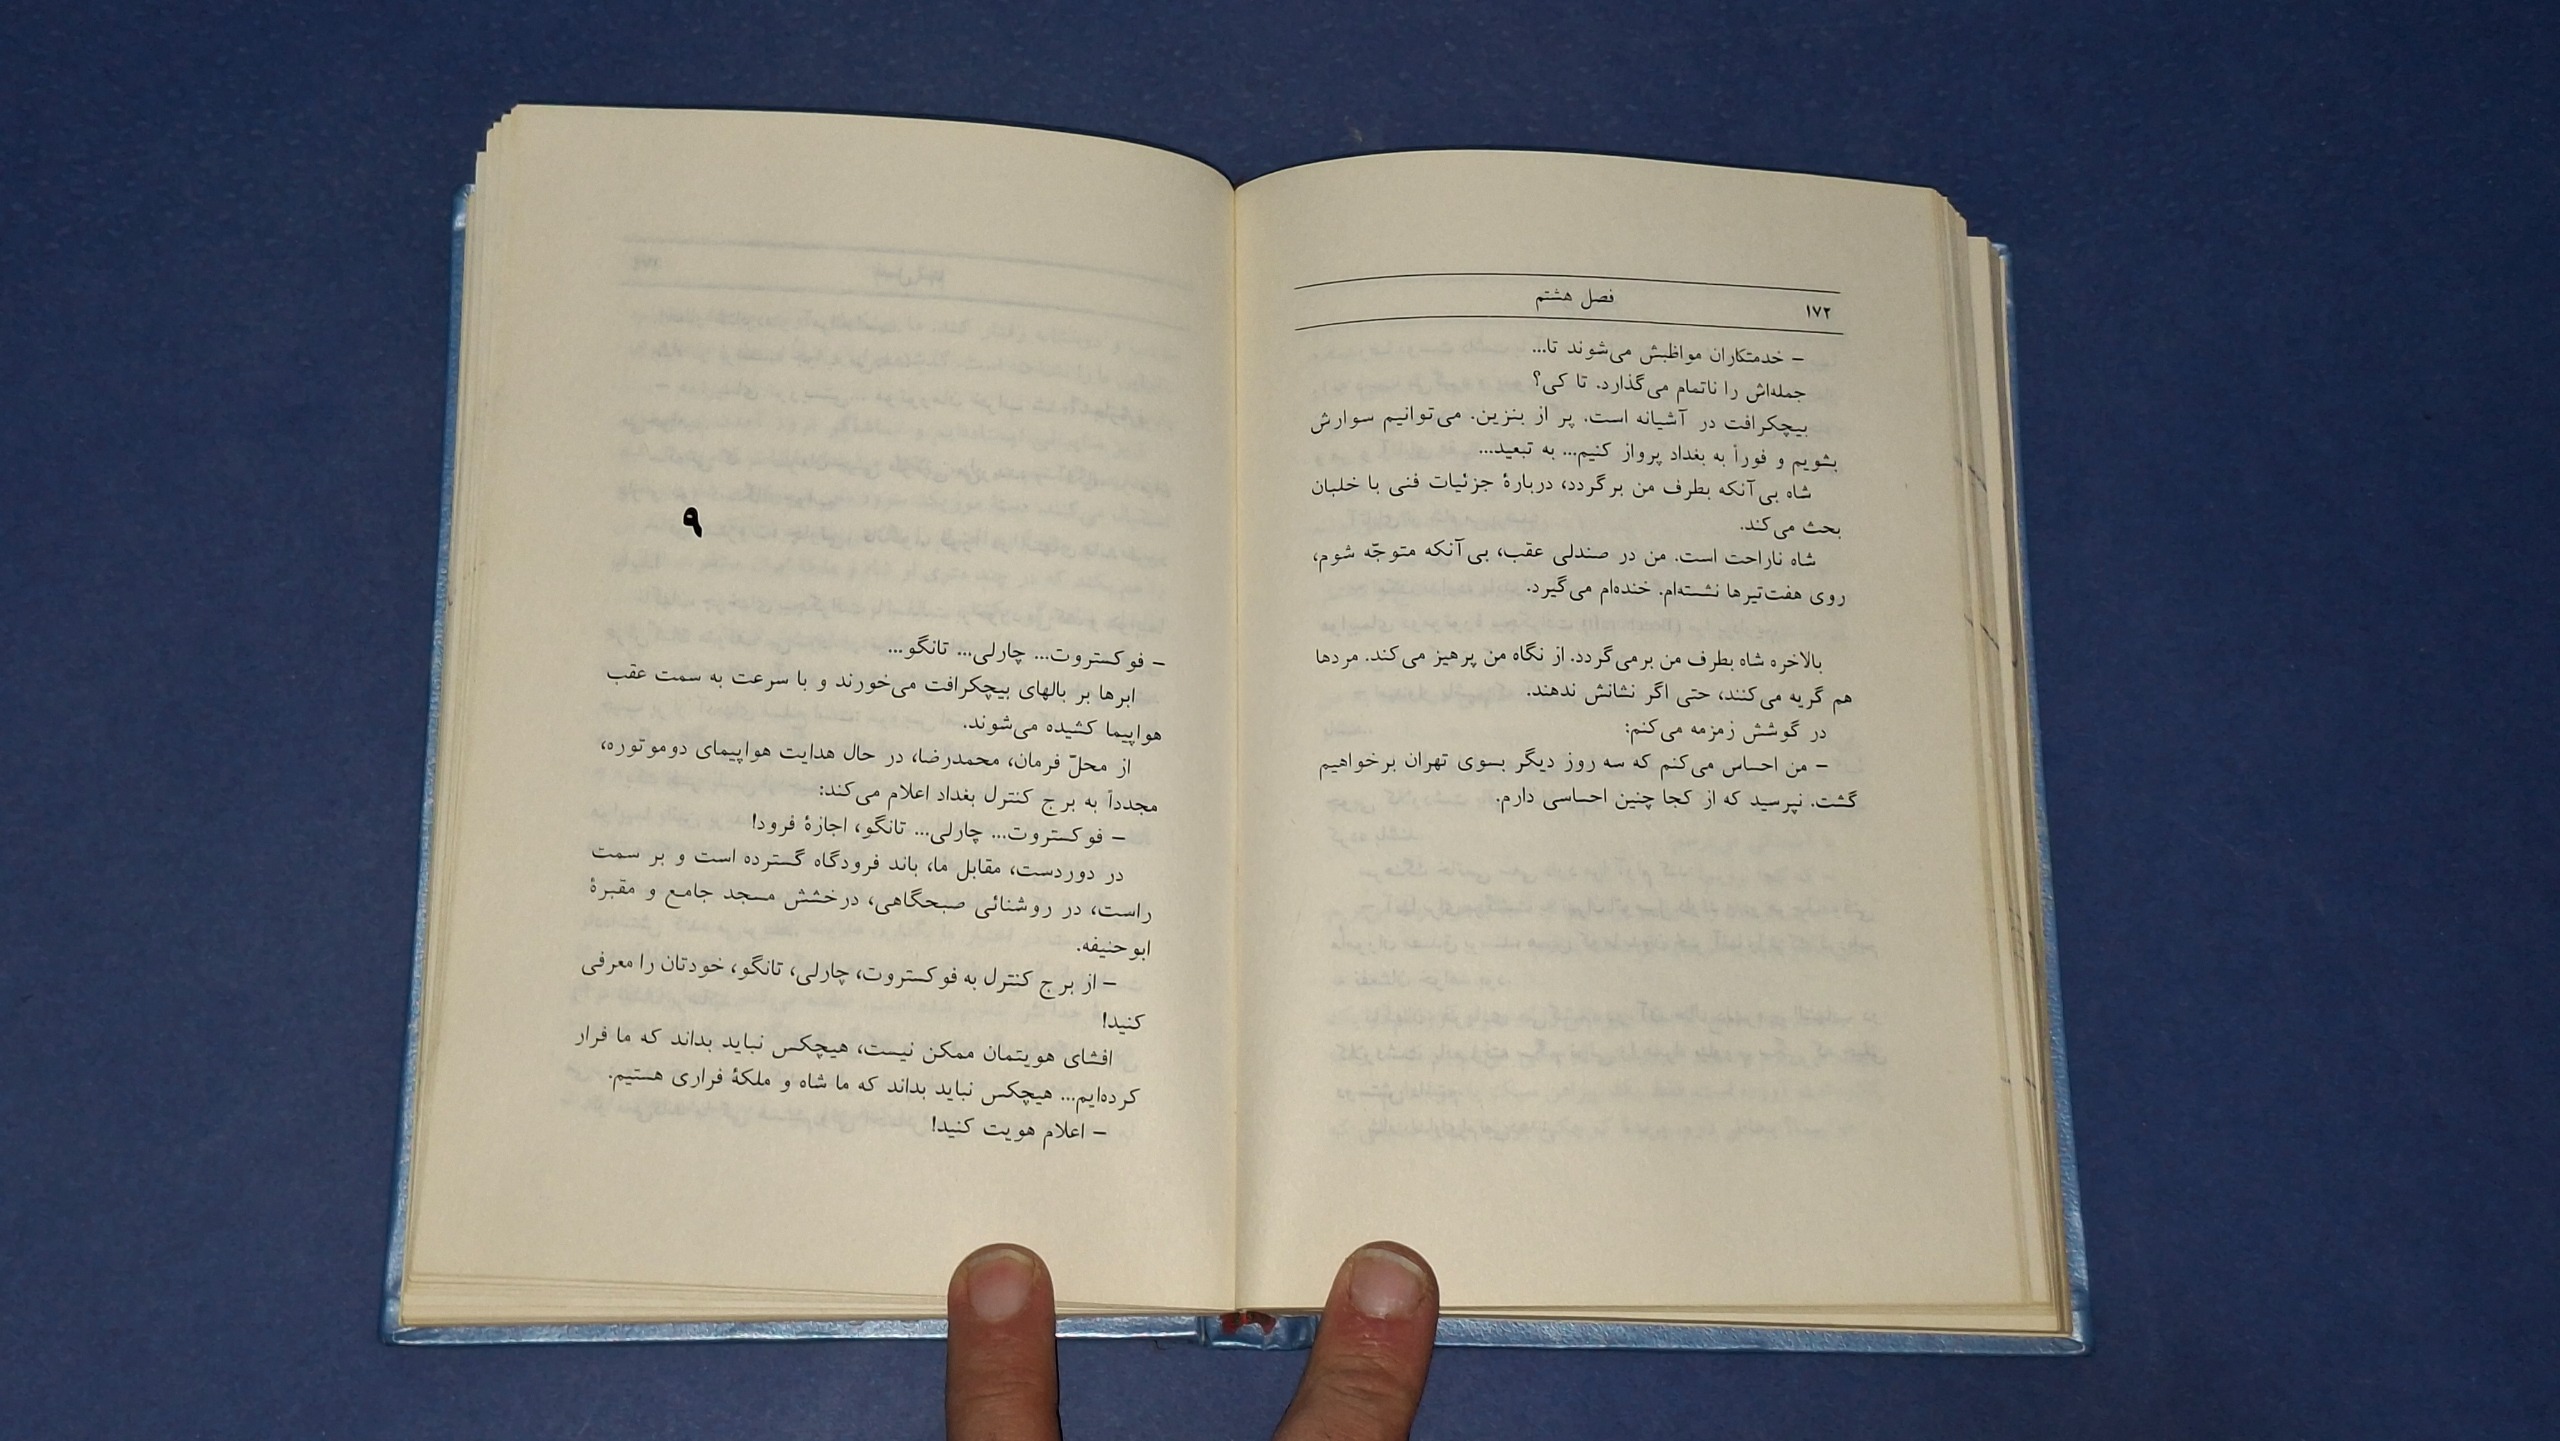 ۱۷۲
فصل هشتم
– خدمتکاران مواظبش می‌شوند تا...
جمله‌اش را ناتمام می‌گذارد. تا کی؟
بیچکرافت در آشیانه است. پر از بنزین. می‌توانیم سوارش
بشویم و فوراً به بغداد پرواز کنیم... به تبعید...
شاه بی‌آنکه بطرف من برگردد، دربارهٔ جزئیات فنی با خلبان
بحث می‌کند.
شاه ناراحت است. من در صندلی عقب، بی‌آنکه متوجّه شوم،
روی هفت‌تیرها نشسته‌ام. خنده‌ام می‌گیرد.
بالاخره شاه بطرف من برمی‌گردد. از نگاه من پرهیز می‌کند. مردها
هم گریه می‌کنند، حتی اگر نشانش ندهند.
در گوشش زمزمه می‌کنم:
– من احساس می‌کنم که سه روز دیگر بسوی تهران برخواهیم
گشت. نپرسید که از کجا چنین احساسی دارم.
۹
– فوکستروت... چارلی... تانگو...
ابرها بر بالهای بیچکرافت می‌خورند و با سرعت به سمت عقب
هواپیما کشیده می‌شوند.
از محلّ فرمان، محمدرضا، در حال هدایت هواپیمای دوموتوره،
مجدداً به برج کنترل بغداد اعلام می‌کند:
– فوکستروت... چارلی... تانگو، اجازهٔ فرود!
در دوردست، مقابل ما، باند فرودگاه گسترده است و بر سمت
راست، در روشنائی صبحگاهی، درخشش مسجد جامع و مقبرهٔ
ابوحنیفه.
– از برج کنترل به فوکستروت، چارلی، تانگو، خودتان را معرفی
کنید!
افشای هویتمان ممکن نیست، هیچکس نباید بداند که ما فرار
کرده‌ایم... هیچکس نباید بداند که ما شاه و ملکهٔ فراری هستیم.
– اعلام هویت کنید!